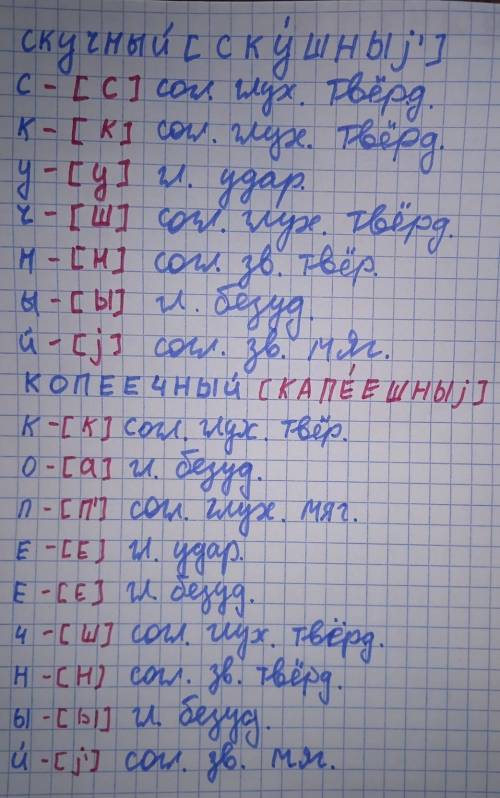 скучный [скýшныj']
с - [с] согл. глух. твёрд.
к - [к] согл. глух. твёрд.
у - [у] гл. удар.
ч - [ш] согл. глух. твёрд.
н - [н] согл. зв. твёр.
ы - [ы] гл. безуд.
й - [j] согл. зв. мяг.
копеечный [капéешныj]
к - [к] согл. глух. твёр.
о - [а] гл. безуд.
п - [п'] согл. глух. мяг.
е - [е] гл. удар.
е - [е] гл. безуд.
ч - [ш] согл. глух. твёрд.
н - [н] согл. зв. твёрд.
ы - [ы] гл. безуд.
й - [j'] согл. зв. мяг.